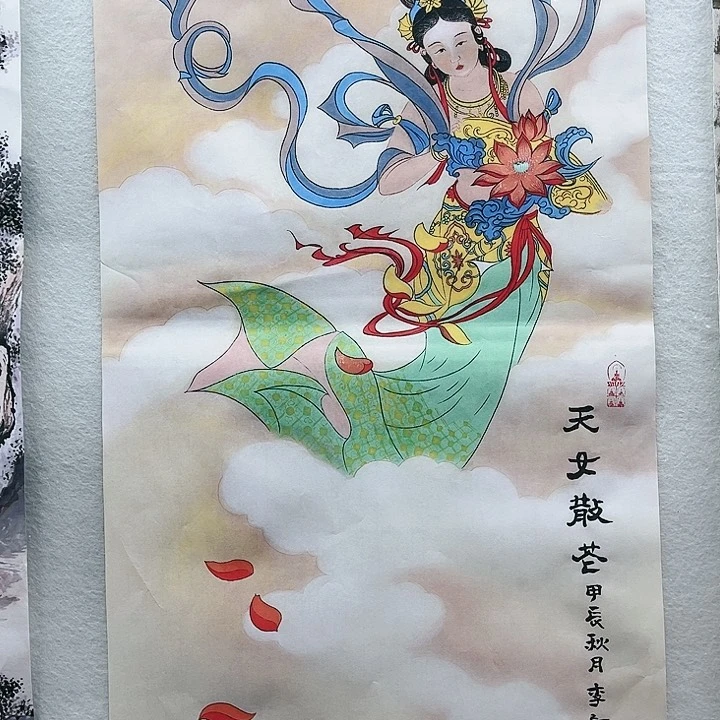 天女散芒
甲辰秋月李